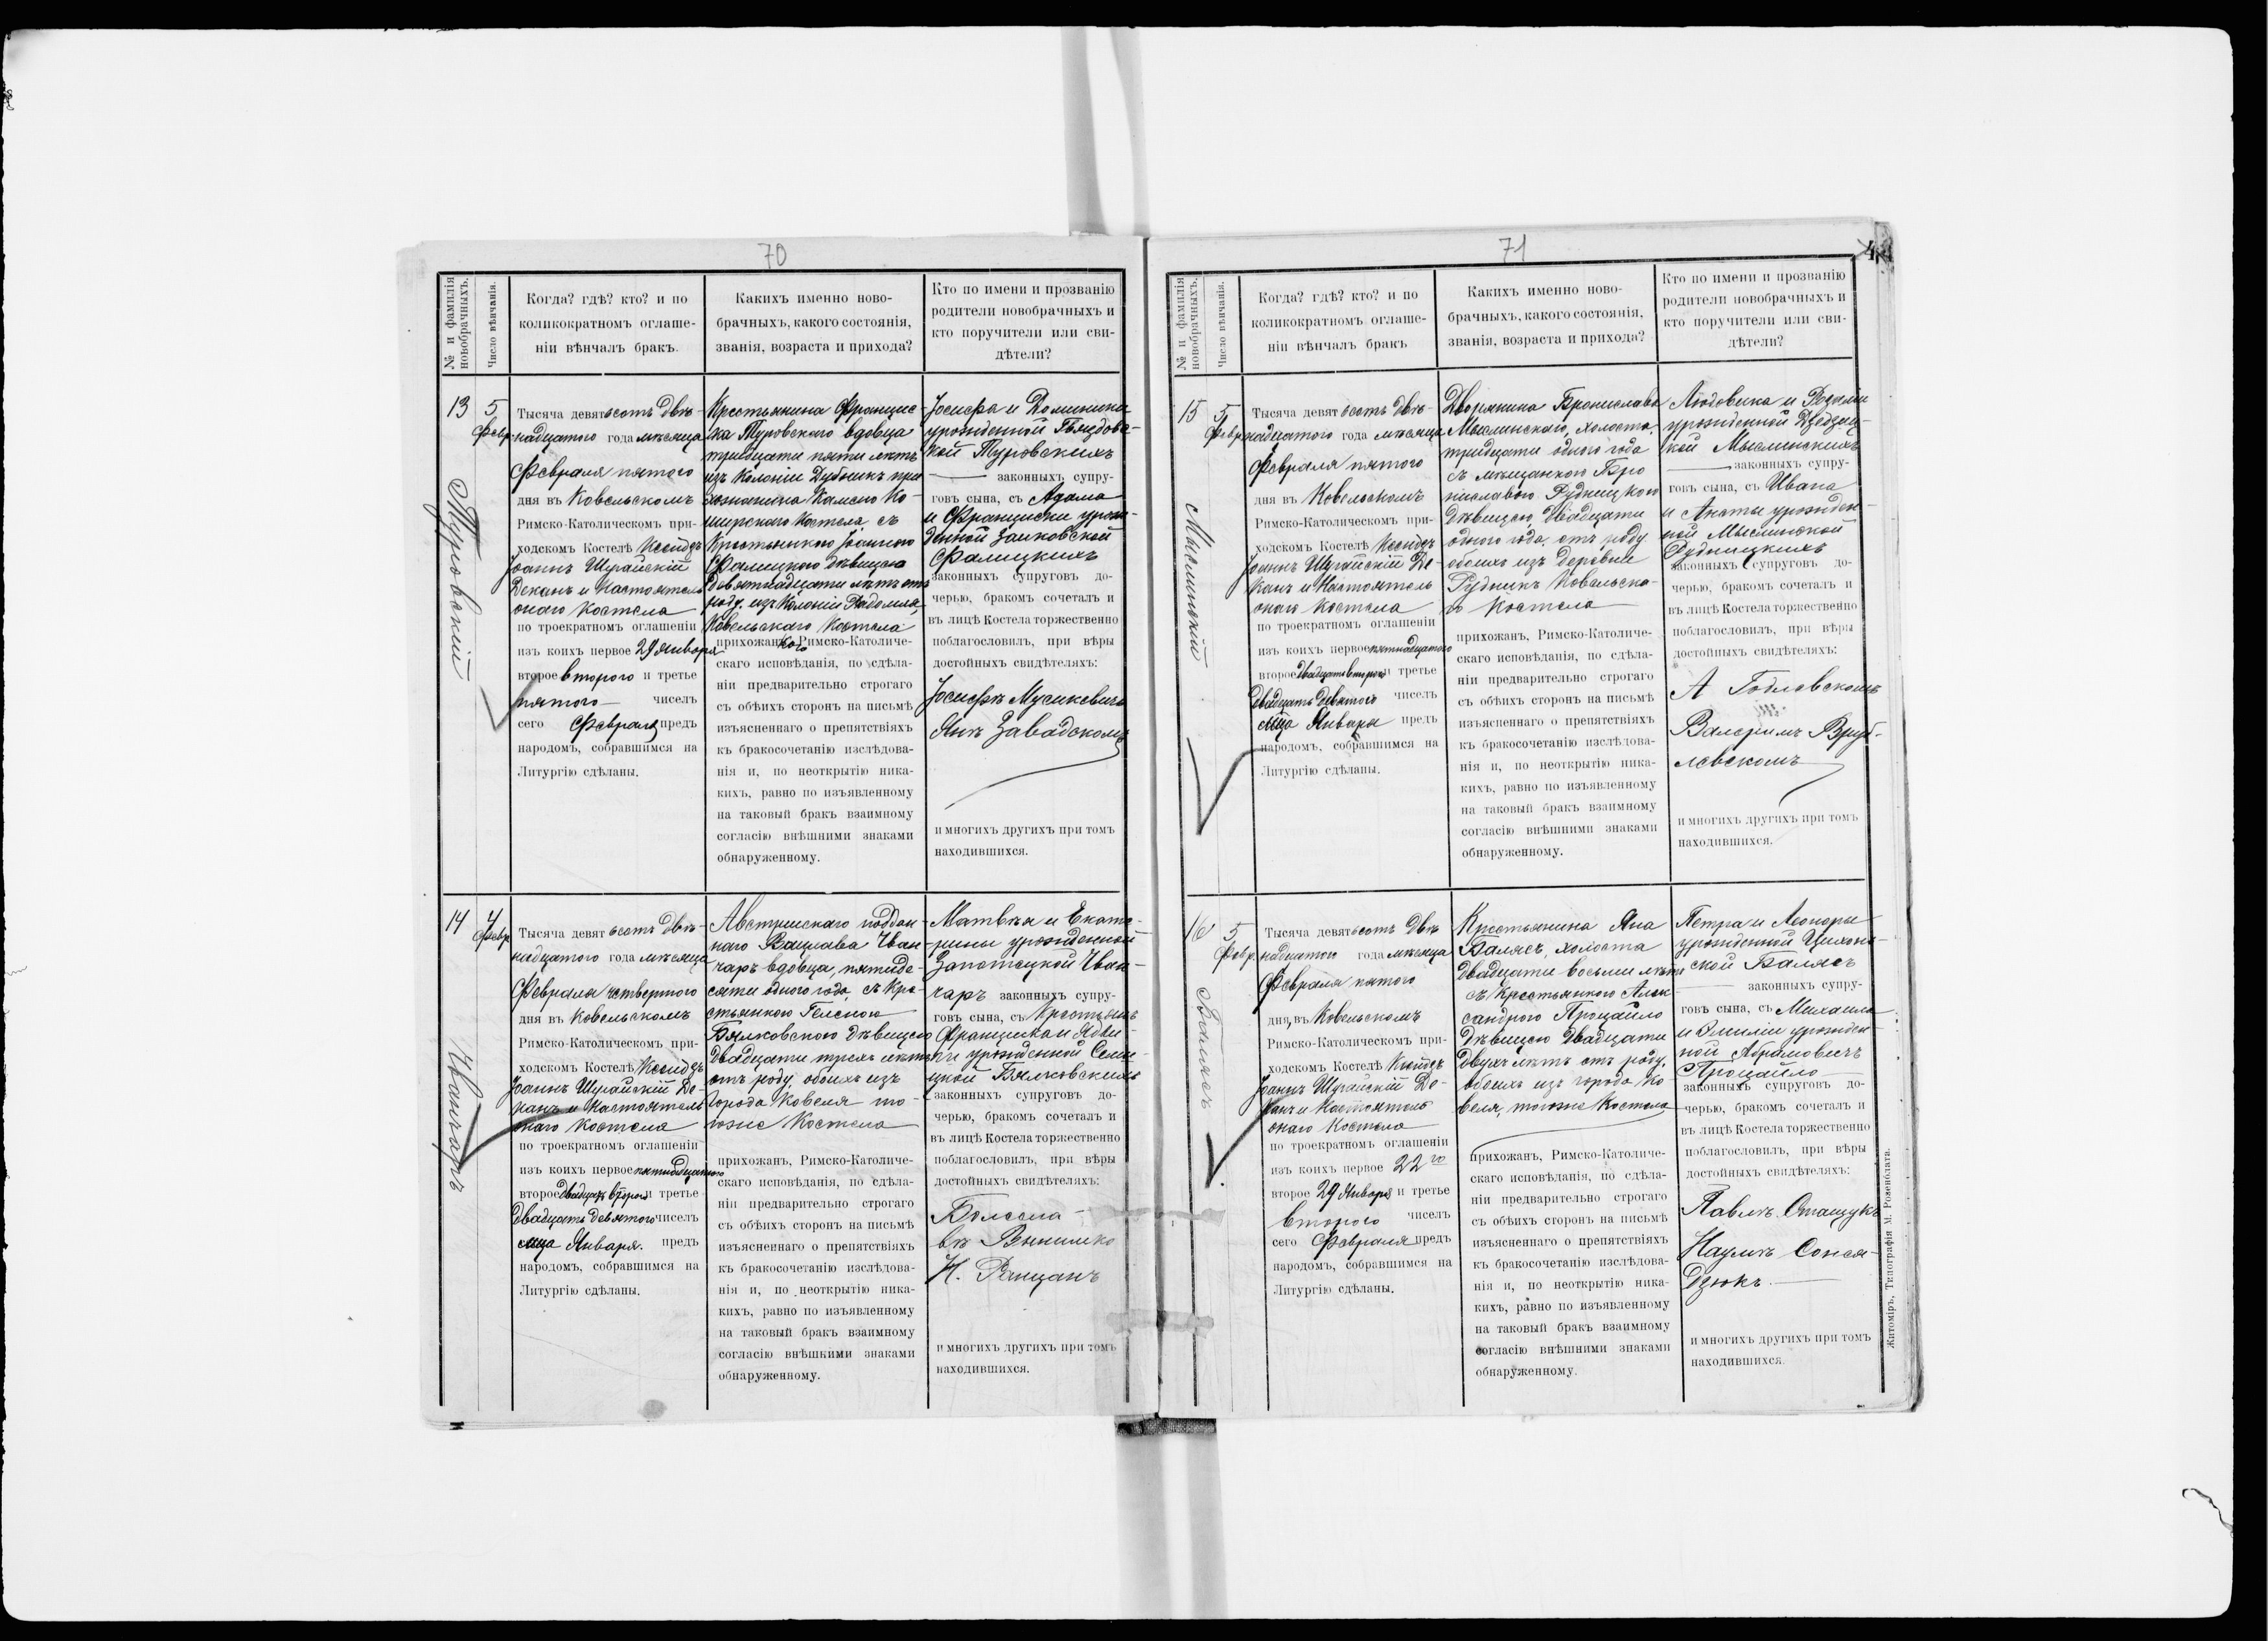 70
№ и фамилія новобрачныхъ.
Число вѣнчанія.
Когда? гдѣ? кто? и по
коликократномъ оглаше-
ніи вѣнчалъ бракъ.
Какихъ именно ново-
брачныхъ, какого состоянія,
званія, возраста и прихода?
Кто по имени и прозванію
родители новобрачныхъ и
кто поручители или сви-
дѣтели?
13
Туровскій
5
Февр.
Тысяча девятьсотъ двѣ-
надцатого года мѣсяца
Февраля пятого
дня въ Ковельскомъ
Римско-Католическомъ при-
ходскомъ Костелѣ Ксендзъ
Іоаннъ Шурайскій
Деканъ и Настоятель
онаго Костела
по троекратномъ оглашеніи
изъ коихъ первое 29 Января
второе второго и третье
пятого чиселъ
сего Февраля предъ
народомъ, собравшимся на
Литургію сдѣланы.
Крестьянина Францис-
ка Туровскаго вдовца
тридцати пяти лѣтъ
изъ Колоніи Дубникъ при
хожанина Камено Ко-
ширскаго Костела, съ
Крестьянкою Іоанною
Фалицкою дѣвицею
девятнадцати лѣтъ отъ
роду, изъ Колоніи Радомля,
Ковельскаго Костела
прихожанкою Римско-Католиче-
скаго исповѣданія, по сдѣла-
ніи предварительно строгаго
съ обѣихъ сторонъ на письмѣ
изъясненнаго о препятствіяхъ
къ бракосочетанію изслѣдова-
нія и, по неоткрытію ника-
кихъ, равно по изъявленному
на таковый бракъ взаимному
согласію внѣшними знаками
обнаруженному.
Іосифа и Доминики
урожденной Гвяздов-
кой Туровскихъ
законныхъ супру-
говъ сына, съ Адама
и Франциски урож-
денной Заиковской
Фалицкихъ
законныхъ супруговъ до-
черью, бракомъ сочеталъ и
въ лицѣ Костела торжественно
поблагословилъ, при вѣры
достойныхъ свидѣтеляхъ:
Іосифъ Мусикевичъ
Янъ Завадскомъ
и многихъ другихъ при томъ
находившихся.
14
Иванчаръ
4
Февр
Тысяча девятьсотъ двѣ-
надцатого года мѣсяца
Февраля четвертого
дня въ Ковельскомъ
Римско-Католическомъ при-
ходскомъ Костелѣ Ксендзъ
Іоаннъ Шурайскій Де-
канъ и Настоятель
онаго Костела
по троекратномъ оглашеніи
изъ коихъ первое пятнадцатого
второе двадцать второго и третье
двадцать девятого чиселъ
мца Января. предъ
народомъ, собравшимся на
Литургію сдѣланы.
Австрійскаго поддан-
наго Вацлава Иван-
чаръ вдовца, пятиде-
сяти одного года, съ Кре-
стьянкою Геленою
Бялковскою дѣвицею
двадцати трехъ лѣтъ
отъ роду, обоихъ изъ
города Ковеля то-
гоже Костела
прихожанъ, Римско-Католиче-
скаго исповѣданія, по сдѣла-
ніи предварительно строгаго
съ обѣихъ сторонъ на письмѣ
изъясненнаго о препятствіяхъ
къ бракосочетанію изслѣдова-
нія и, по неоткрытію ника-
кихъ, равно по изъявленному
на таковый бракъ взаимному
согласію внѣшними знаками
обнаруженному.
Матвѣя и Екате-
рины урожденной
Запотоцкой Иван-
чаръ законныхъ супру-
говъ сына, съ Крестьянъ
Францишка и Ядви-
ги урожденной
Бялковскихъ
законныхъ супруговъ до-
черью, бракомъ сочеталъ и
въ лицѣ Костела торжественно
поблагословилъ, при вѣры
достойныхъ свидѣтеляхъ:
Болесла-
въ
Н.
и многихъ другихъ при томъ
находившихся.
71
№ и фамилія новобрачныхъ.
Число вѣнчанія.
Когда? гдѣ? кто? и по
коликократномъ оглаше-
ніи вѣнчалъ бракъ
Какихъ именно ново-
брачныхъ, какого состоянія,
званія, возраста и прихода?
Кто по имени и прозванію
родители новобрачныхъ и
кто поручители или сви-
дѣтели?
15
Мыслинскій
5
Февр.
Тысяча девятьсотъ двѣ-
надцатого года мѣсяца
Февраля пятого
дня въ Ковельскомъ
Римско-Католическомъ при-
ходскомъ Костелѣ Ксендзъ
Іоаннъ Шурайскій Де-
канъ и Настоятель
онаго Костела
по троекратномъ оглашеніи
изъ коихъ первое пятнадцатого
второе двадцать второго и третье
двадцать девятого чиселъ
мца Января предъ
народомъ, собравшимся на
Литургію сдѣланы.
Дворянина Бронислава
Мыслинскаго, холоста,
тридцати одного года
съ мѣщанкою Бро
ниславою Рудницкою
дѣвицею, двадцати
одного года, отъ роду
обоихъ изъ деревни
Рудникъ Ковельска-
го Костела
прихожанъ, Римско-Католиче-
скаго исповѣданія, по сдѣла-
ніи предварительно строгаго
съ обѣихъ сторонъ на письмѣ
изъясненнаго о препятствіяхъ
къ бракосочетанію изслѣдова-
нія и, по неоткрытію ника-
кихъ, равно по изъявленному
на таковый бракъ взаимному
согласію внѣшними знаками
обнаруженному.
Людовика и Розаліи
урожденной Дзедзиц-
кой Мыслинскихъ
законныхъ супру-
говъ сына, съ Ивана
и Анеты урожден-
ной Мыслинской
Рудницкихъ
законныхъ супруговъ до-
черью, бракомъ сочеталъ и
въ лицѣ Костела торжественно
поблагословилъ, при вѣры
достойныхъ свидѣтеляхъ:
А Годлевскомъ
Валеріямъ Вруб-
левскомъ
и многихъ другихъ при томъ
находившихся.
16
Балясъ
5
Февр.
Тысяча девятьсотъ двѣ
надцатого года мѣсяца
Февраля пятого
дня въ Ковельскомъ
Римско-Католическомъ при-
ходскомъ Костелѣ Ксендзъ
Іоаннъ Шурайскій Де-
канъ и Настоятель
онаго Костела
по троекратномъ оглашеніи
изъ коихъ первое 22го
второе 29 Января и третье
второго чиселъ
сего Февраля предъ
народомъ, собравшимся на
Литургію сдѣланы.
Крестьянина Яна
Балясъ, холоста
двадцати восьми лѣтъ
съ Крестьянкою Алек
сандрою Процайло
дѣвицею двадцати
двухъ лѣтъ отъ роду,
обоихъ изъ города Ко-
веля, тогоже Костела
прихожанъ, Римско-Католиче-
скаго исповѣданія, по сдѣла-
ніи предварительно строгаго
съ обѣихъ сторонъ на письмѣ
изъясненнаго о препятствіяхъ
къ бракосочетанію изслѣдова-
нія и, по неоткрытію ника-
кихъ, равно по изъявленному
на таковый бракъ взаимному
согласію внѣшними знаками
обнаруженному.
Петра и Леоноры
урожденной Цихон-
ской Балясъ
законныхъ супру-
говъ сына, съ Михаила
и Эмиліи урожден-
ной Абрамовичъ
Процайло
законныхъ супруговъ до-
черью, бракомъ сочеталъ и
въ лицѣ Костела торжественно
поблагословилъ, при вѣры
достойныхъ свидѣтеляхъ:
Павлъ Стащукъ
Наумъ
дзюкъ.
и многихъ другихъ при томъ
находившихся.
Житоміръ, Типографія М. Розенблата.